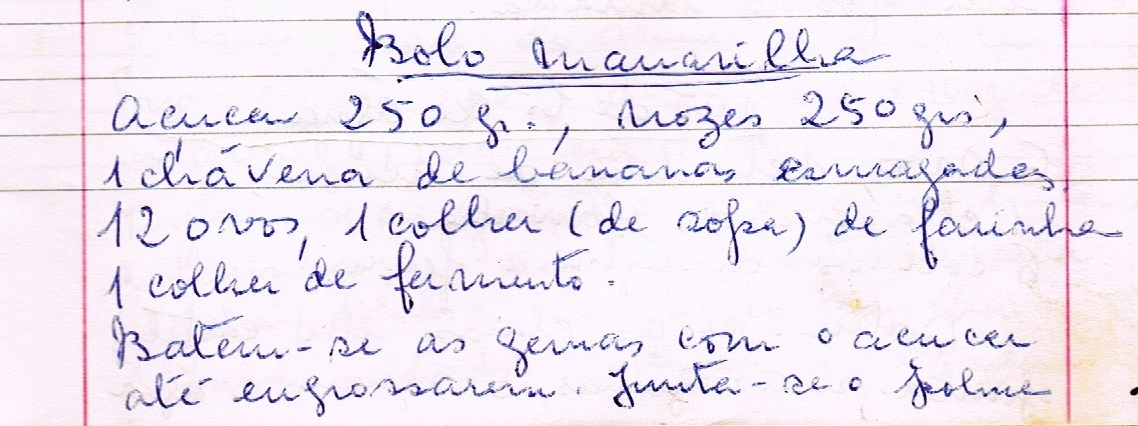 Bolo Maravilha
Açucar 250 gr., Nozes 250 grs,
1 chávena de bananas esmagadas
12 ovos, 1 colher (de sopa) de farinha
1 colher de fermento.
Batem-se as gemas com o açucar
até engrossarem. Junta-se o polme